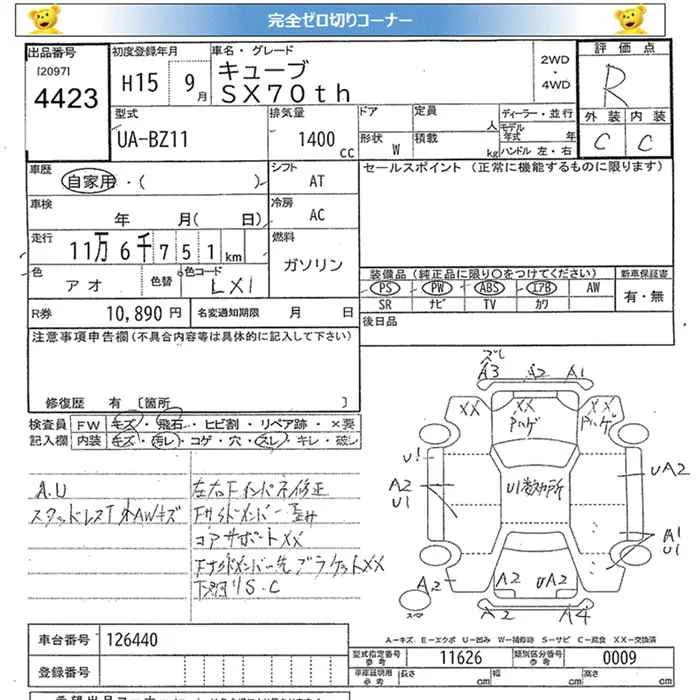 完全ゼロ切りコーナー
出品番号
[2097]
4423
初度登録年月
H15 9月
車名・グレード
キューブ
SX70th
2WD
・
4WD
評価点
R
外装 内装
C C
型式
UA-BZ11
排気量
1400 cc
ドア
定員
人
形状
W
積載
kg
ディーラー・並行
モデル年式 年
ハンドル 左・右
車歴
自家用・( )
シフト
AT
セールスポイント (正常に機能するものに限ります)
車検
年 月( 日)
冷房
AC
走行
11万6千751km
燃料
ガソリン
色
アオ
色替
色コード
LX1
装備品 (純正品に限り○をつけてください)
新車保証書
PS PW ABS エアB AW
有・無
SR ナビ TV カワ
R券
10,890 円
名変通知期限 月 日
後日品
注意事項申告欄(不具合内容等は具体的に記入して下さい)
修復歴 有 [箇所 ]
検査員記入欄
FW キズ・飛石・ヒビ割・リペア跡・×要
内装 キズ・汚レ・コゲ・穴・スレ・キレ・破レ
A.U
スタッドレスT
AWキズ
左右Fインパネ修正
Fサイドメンバー
コアサポートXX
Fサイドメンバー先ブラケットXX
下廻りS.C
ズレ
A3 A1
XX XX XX
ハゲ ハゲ
U1
A2
U1
U1
UA2
A1
U1
A2 UA2
A2
スマ
A2 A4
A-キズ E-エクボ U-凹み W-補修跡 S-サビ C-腐食 XX-交換済
車台番号 126440
登録番号
型式指定番号
参考
11626
類別区分番号
参考
0009
車庫証明用
参考
長さ cm 幅 cm 高さ cm